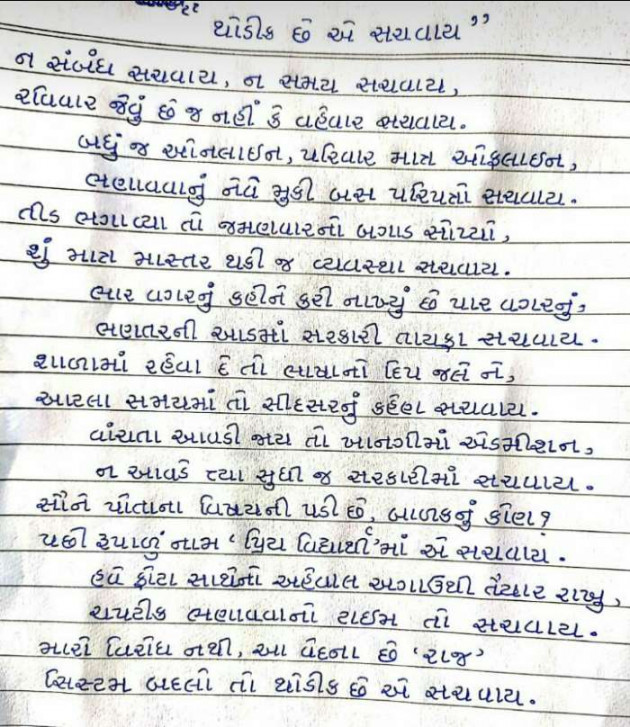 થોડીક છે એ સચવાય"
ન સંબંધ સચવાય, ન સમય સચવાય,
રવિવાર જેવું છે જ નહીં કે વહેવાર સચવાય.
બધું જ ઓનલાઈન, પરિવાર માત્ર ઓફલાઈન,
ભણાવવાનું નેવે મુકી બસ પરિપત્રો સચવાય.
તીડ ભગાવ્યા તો જમણવારનો બગાડ સોંપ્યો,
શું માત્ર માસ્તર થકી જ વ્યવસ્થા સચવાય.
ભાર વગરનું કહીને કરી નાખ્યું છે પાર વગરનું,
ભણતરની આડમાં સરકારી તાયફા સચવાય.
શાળામાં રહેવા દે તો ભાષાનો દિપ જલે ને,
આટલા સમયમાં તો સીદસરનું કહેણ સચવાય.
વાંચતા આવડી જાય તો ખાનગીમાં એડમીશન,
ન આવડે ત્યા સુધી જ સરકારીમાં સચવાય.
સૌને પોતાના વિષયની પડી છે, બાળકનું કોણ?
પછી રૂપાળું નામ 'પ્રિય વિદ્યાર્થી'માં એ સચવાય.
હવે ફોટા સાથેનો અહેવાલ અગાઉથી તૈયાર રાખુ,
ચપટીક ભણાવવાનો ટાઈમ તો સચવાય.
મારો વિરોધ નથી, આ વેદના છે 'રાજ'
સિસ્ટમ બદલો તો થોડીક છે એ સચવાય.